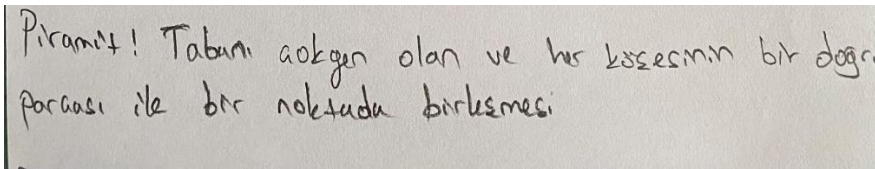 Piramit! Tabanı çokgen olan ve her köşesinin bir doğru
parçası ile bir noktada birleşmesi